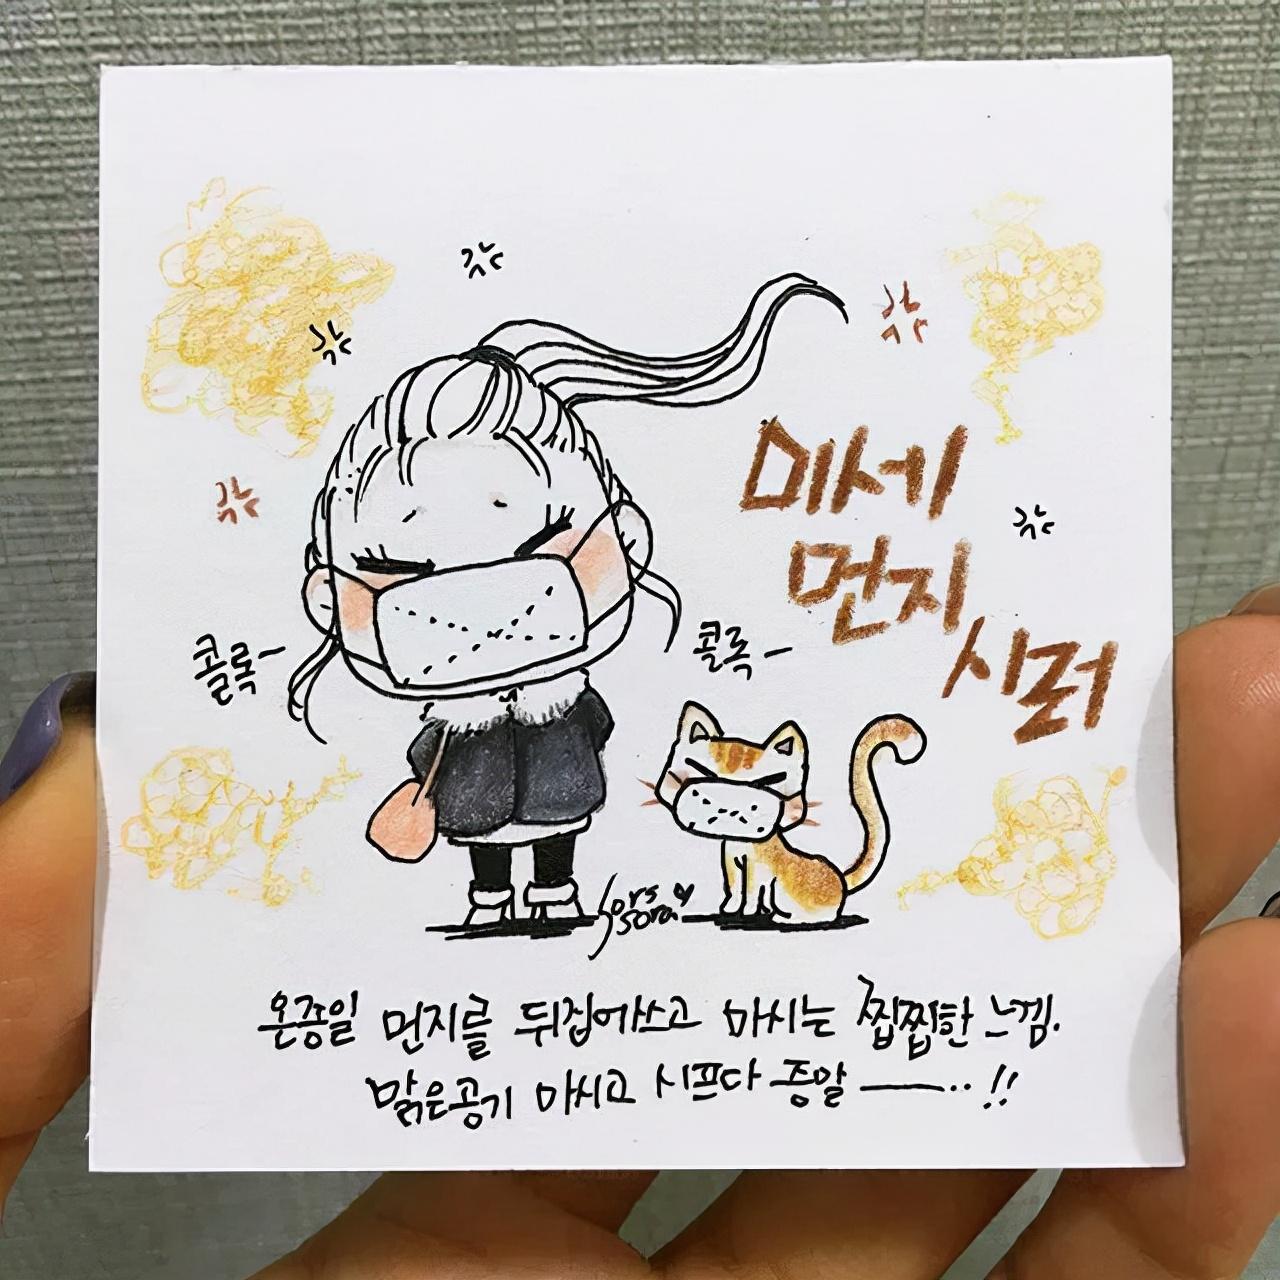 미세
먼지
시러
콜록~
콜록~
sors
sora
온종일 먼지를 뒤집에쓰고 마시는 찝찝한 느낌.
맑은공기 마시고 시프다 증말 ———··!!